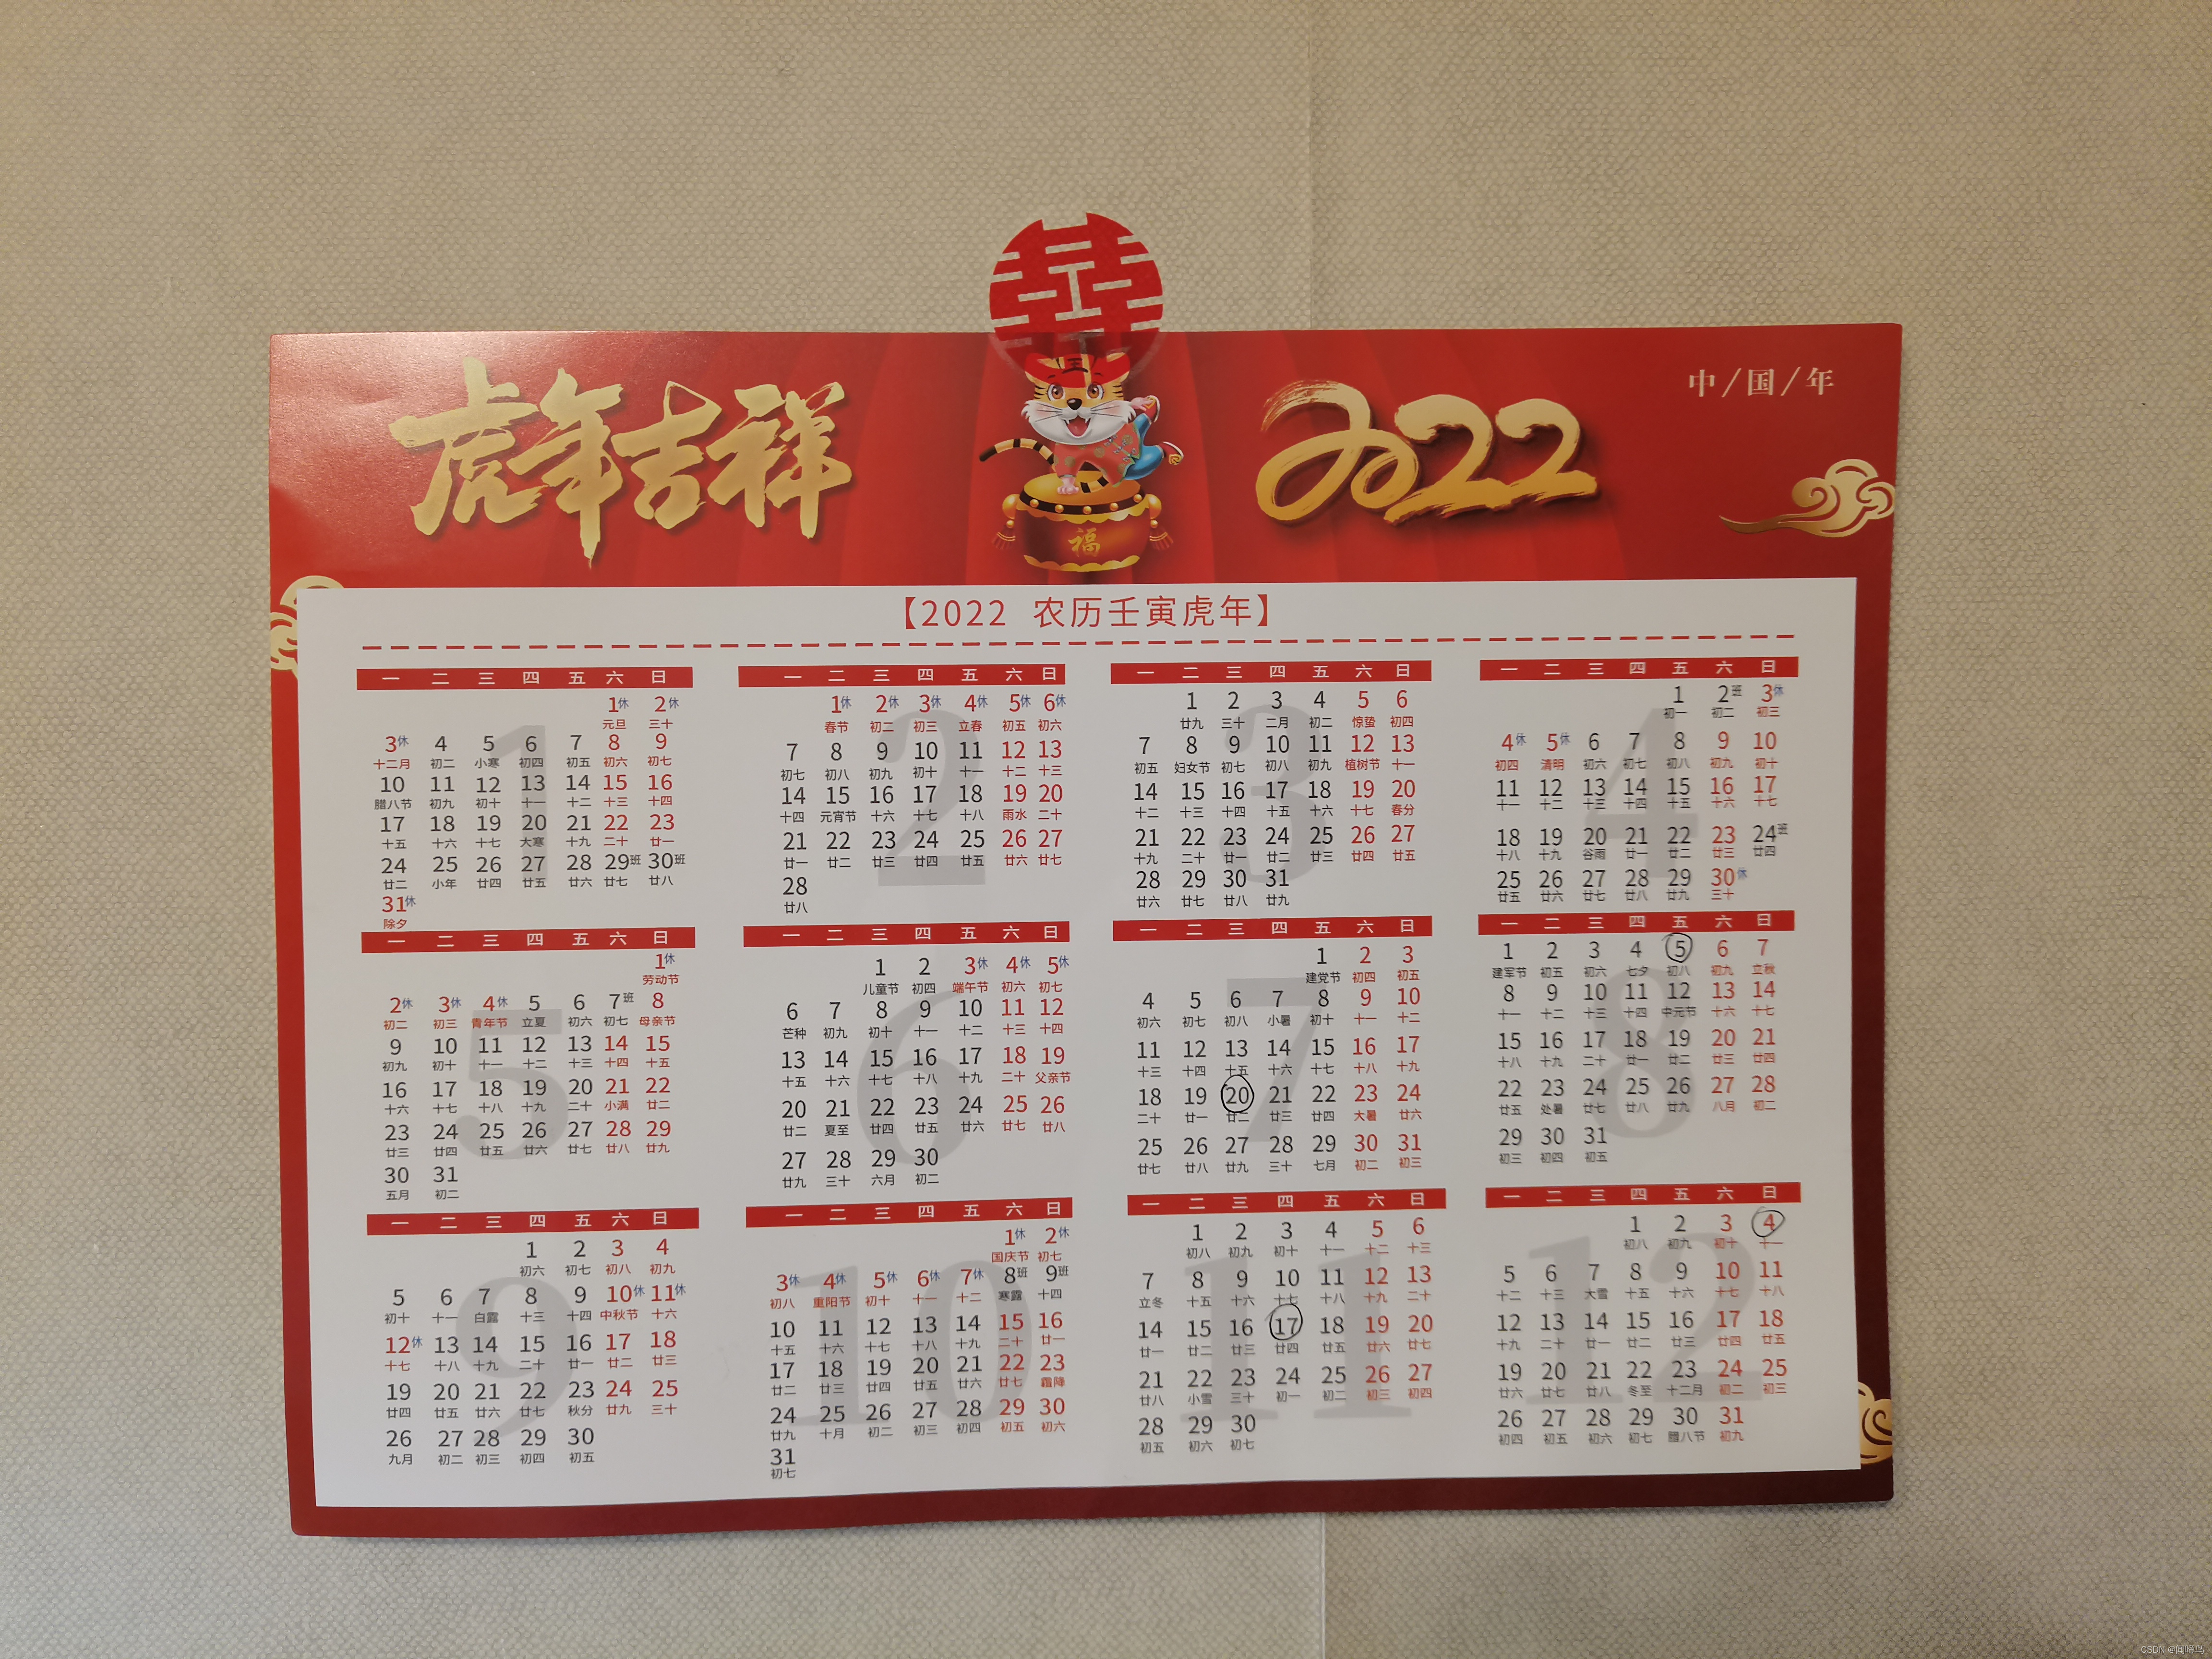 囍
虎年吉祥
福
2022
中/国/年
【2022 农历壬寅虎年】
1
一 二 三 四 五 六 日
1休 2休
元旦 三十
3休 4 5 6 7 8 9
十二月 初二 小寒 初四 初五 初六 初七
10 11 12 13 14 15 16
腊八节 初九 初十 十一 十二 十三 十四
17 18 19 20 21 22 23
十五 十六 十七 大寒 十九 二十 廿一
24 25 26 27 28 29班 30班
廿二 小年 廿四 廿五 廿六 廿七 廿八
31休
除夕
2
一 二 三 四 五 六 日
1休 2休 3休 4休 5休 6休
春节 初二 初三 立春 初五 初六
7 8 9 10 11 12 13
初七 初八 初九 初十 十一 十二 十三
14 15 16 17 18 19 20
十四 元宵节 十六 十七 十八 雨水 二十
21 22 23 24 25 26 27
廿一 廿二 廿三 廿四 廿五 廿六 廿七
28
廿八
3
一 二 三 四 五 六 日
1 2 3 4 5 6
廿九 三十 二月 初二 惊蛰 初四
7 8 9 10 11 12 13
初五 妇女节 初七 初八 初九 植树节 十一
14 15 16 17 18 19 20
十二 十三 十四 十五 十六 十七 春分
21 22 23 24 25 26 27
十九 二十 廿一 廿二 廿三 廿四 廿五
28 29 30 31
廿六 廿七 廿八 廿九
4
一 二 三 四 五 六 日
1 2班 3休
初一 初二 初三
4休 5休 6 7 8 9 10
初四 清明 初六 初七 初八 初九 初十
11 12 13 14 15 16 17
十一 十二 十三 十四 十五 十六 十七
18 19 20 21 22 23 24班
十八 十九 谷雨 廿一 廿二 廿三 廿四
25 26 27 28 29 30休
廿五 廿六 廿七 廿八 廿九 三十
5
一 二 三 四 五 六 日
1休
劳动节
2休 3休 4休 5 6 7班 8
初二 初三 青年节 立夏 初六 初七 母亲节
9 10 11 12 13 14 15
初九 初十 十一 十二 十三 十四 十五
16 17 18 19 20 21 22
十六 十七 十八 十九 二十 小满 廿二
23 24 25 26 27 28 29
廿三 廿四 廿五 廿六 廿七 廿八 廿九
30 31
五月 初二
6
一 二 三 四 五 六 日
1 2 3休 4休 5休
儿童节 初四 端午节 初六 初七
6 7 8 9 10 11 12
芒种 初九 初十 十一 十二 十三 十四
13 14 15 16 17 18 19
十五 十六 十七 十八 十九 二十 父亲节
20 21 22 23 24 25 26
廿二 夏至 廿四 廿五 廿六 廿七 廿八
27 28 29 30
廿九 三十 六月 初二
7
一 二 三 四 五 六 日
1 2 3
建党节 初四 初五
4 5 6 7 8 9 10
初六 初七 初八 小暑 初十 十一 十二
11 12 13 14 15 16 17
十三 十四 十五 十六 十七 十八 十九
18 19 20 21 22 23 24
二十 廿一 廿二 廿三 廿四 大暑 廿六
25 26 27 28 29 30 31
廿七 廿八 廿九 三十 七月 初二 初三
8
一 二 三 四 五 六 日
1 2 3 4 5 6 7
建军节 初五 初六 七夕 初八 初九 立秋
8 9 10 11 12 13 14
十一 十二 十三 十四 中元节 十六 十七
15 16 17 18 19 20 21
十八 十九 二十 廿一 廿二 廿三 廿四
22 23 24 25 26 27 28
廿五 处暑 廿七 廿八 廿九 八月 初二
29 30 31
初三 初四 初五
9
一 二 三 四 五 六 日
1 2 3 4
初六 初七 初八 初九
5 6 7 8 9 10休 11休
初十 十一 白露 十三 十四 中秋节 十六
12休 13 14 15 16 17 18
十七 十八 十九 二十 廿一 廿二 廿三
19 20 21 22 23 24 25
廿四 廿五 廿六 廿七 秋分 廿九 三十
26 27 28 29 30
九月 初二 初三 初四 初五
10
一 二 三 四 五 六 日
1休 2休
国庆节 初七
3休 4休 5休 6休 7休 8班 9班
初八 重阳节 初十 十一 十二 寒露 十四
10 11 12 13 14 15 16
十五 十六 十七 十八 十九 二十 廿一
17 18 19 20 21 22 23
廿二 廿三 廿四 廿五 廿六 廿七 霜降
24 25 26 27 28 29 30
廿九 十月 初二 初三 初四 初五 初六
31
初七
11
一 二 三 四 五 六 日
1 2 3 4 5 6
初八 初九 初十 十一 十二 十三
7 8 9 10 11 12 13
立冬 十五 十六 十七 十八 十九 二十
14 15 16 17 18 19 20
廿一 廿二 廿三 廿四 廿五 廿六 廿七
21 22 23 24 25 26 27
廿八 小雪 三十 初一 初二 初三 初四
28 29 30
初五 初六 初七
12
一 二 三 四 五 六 日
1 2 3 4
初八 初九 初十 十一
5 6 7 8 9 10 11
十二 十三 大雪 十五 十六 十七 十八
12 13 14 15 16 17 18
十九 二十 廿一 廿二 廿三 廿四 廿五
19 20 21 22 23 24 25
廿六 廿七 廿八 冬至 十二月 初二 初三
26 27 28 29 30 31
初四 初五 初六 初七 腊八节 初九
CSDN